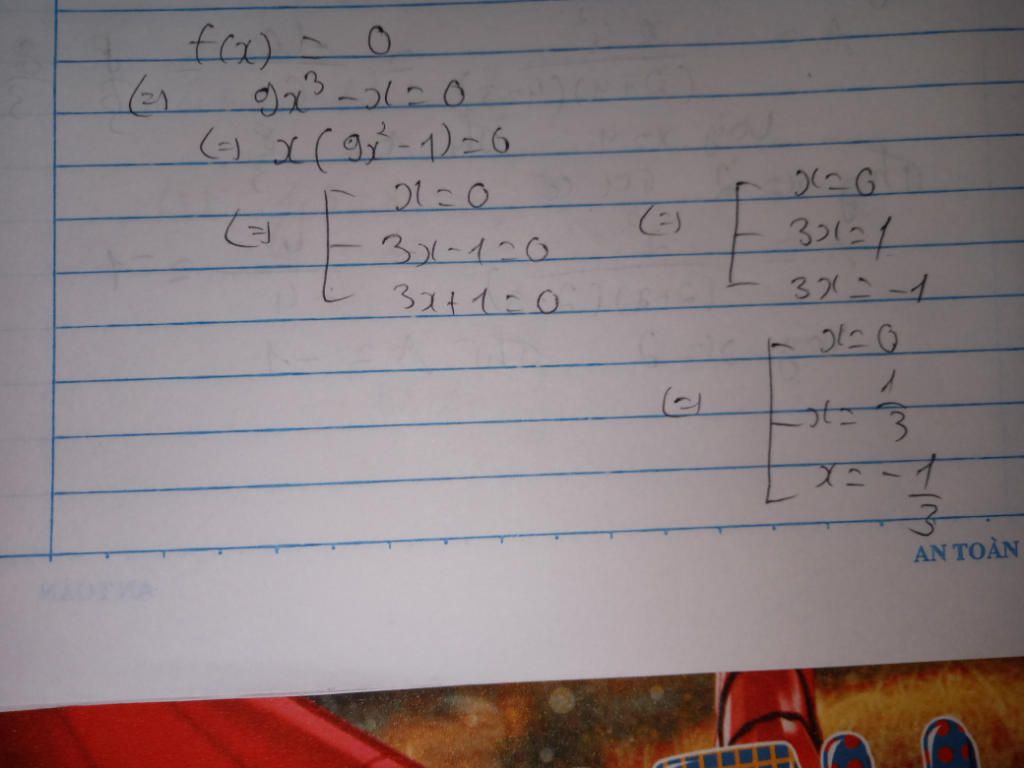 f(x) = 0
(=) 9x³ - x = 0
(=) x (9x² - 1) = 0
(=) [ x = 0 (=) [ x = 0
3x - 1 = 0 3x = 1
3x + 1 = 0 3x = -1
(=) [ x = 0
x = 1/3
x = - 1/3
AN TOÀN